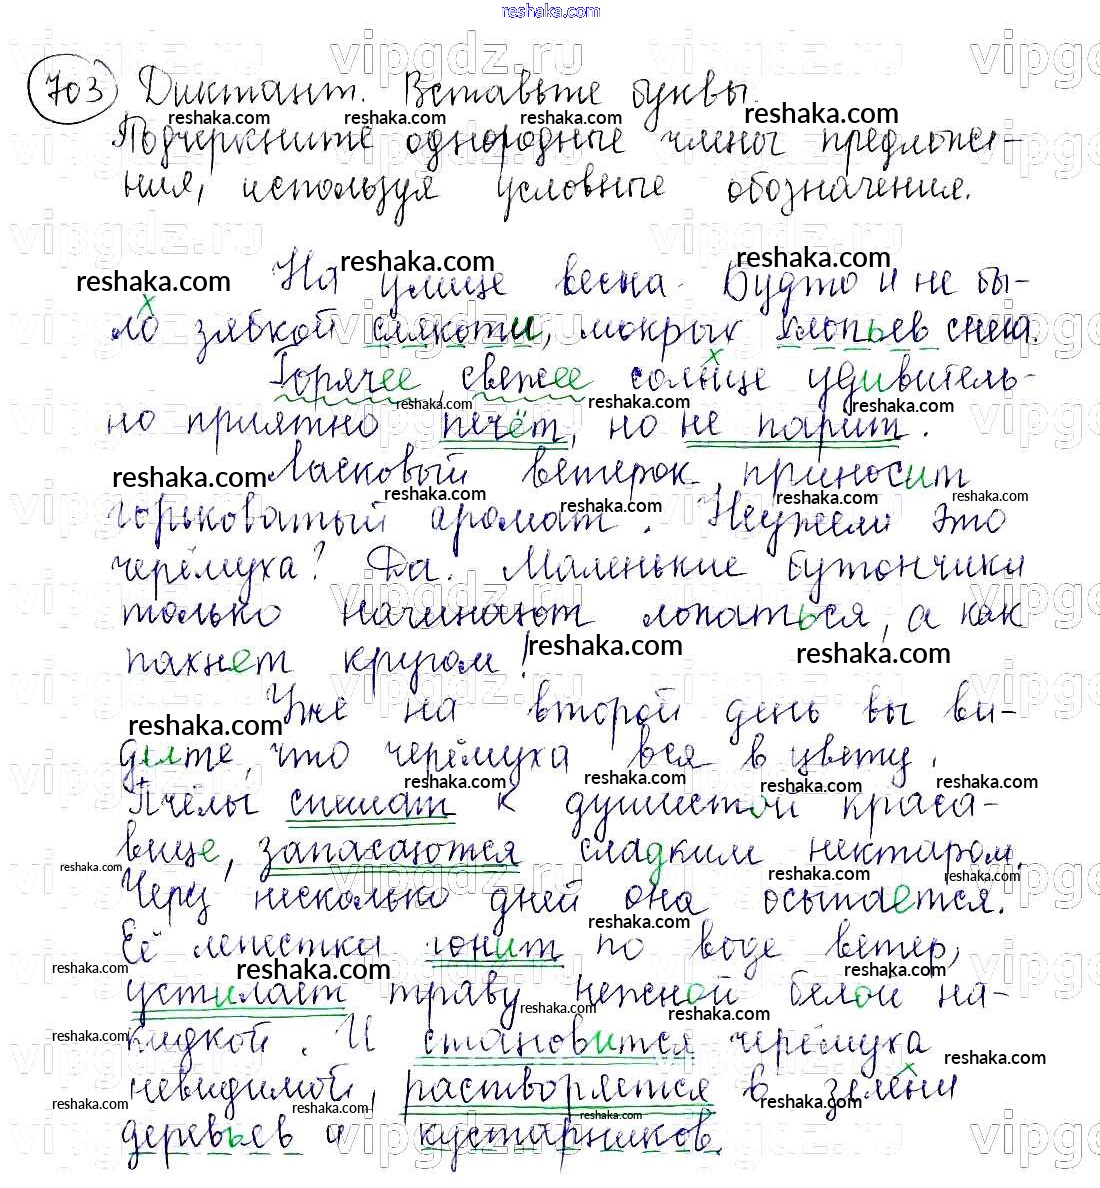 reshaka.com
703 Диктант. Вставьте буквы.
Подчеркните однородные члены предложе-
ния, используя условные обозначения.
На улице весна. Будто и не бы-
ло зябкой слякоти, мокрых хлопьев снега.
Горячее, свежее солнце удивитель-
но приятно печёт, но не парит.
Ласковый ветерок приносит
горьковатый аромат. Неужели это
черёмуха? Да. Маленькие бутончики
только начинают лопаться, а как
пахнет кругом!
Уже на второй день вы ви-
дите, что черёмуха вся в цвету.
Пчёлы спешат к душистой краса-
вице, запасаются сладким нектаром.
Через несколько дней она осыпается.
Её лепестка гонит по воде ветер,
устилает траву нежной белой на-
кидкой. И становится черёмуха
невидимой, растворяется в зелени
деревьев и кустарников.